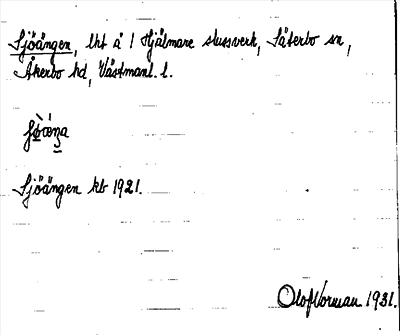 Sjöängen, lht å 1 Hjälmare slussverk, Säterbo sn,
Åkerbo hd, Västmanl. l.
Sjöängen kb 1921.
Olof Norman 1931.